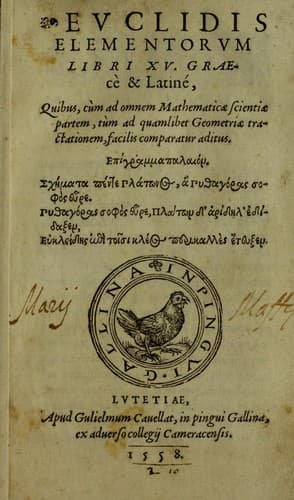 EVCLIDIS
ELEMENTORVM
LIBRI XV. GRAE-
cè & Latiné,
Quibus, cùm ad omnem Mathematicæ scientiæ
partem, tùm ad quamlibet Geometriæ tra-
ctationem, facilis comparatur aditus.
Επίγραμμα παλαιόν.
Σχήματα πέντε Πλάτωνος, ἃ Πυθαγόρας σο-
φὸς εὗρε.
Πυθαγόρας σοφὸς εὗρε, Πλάτων δ' ἀρίδηλ' ἐδί-
δαξεν,
Εὐκλείδης ἐπὶ τοῖσι κλέος περικαλλὲς ἔτευξεν.
IN PINGVI GALLINA
Marij
Matt
LVTETIAE,
Apud Gulielmum Cauellat, in pingui Gallina,
ex aduerso collegij Cameracensis.
1558.